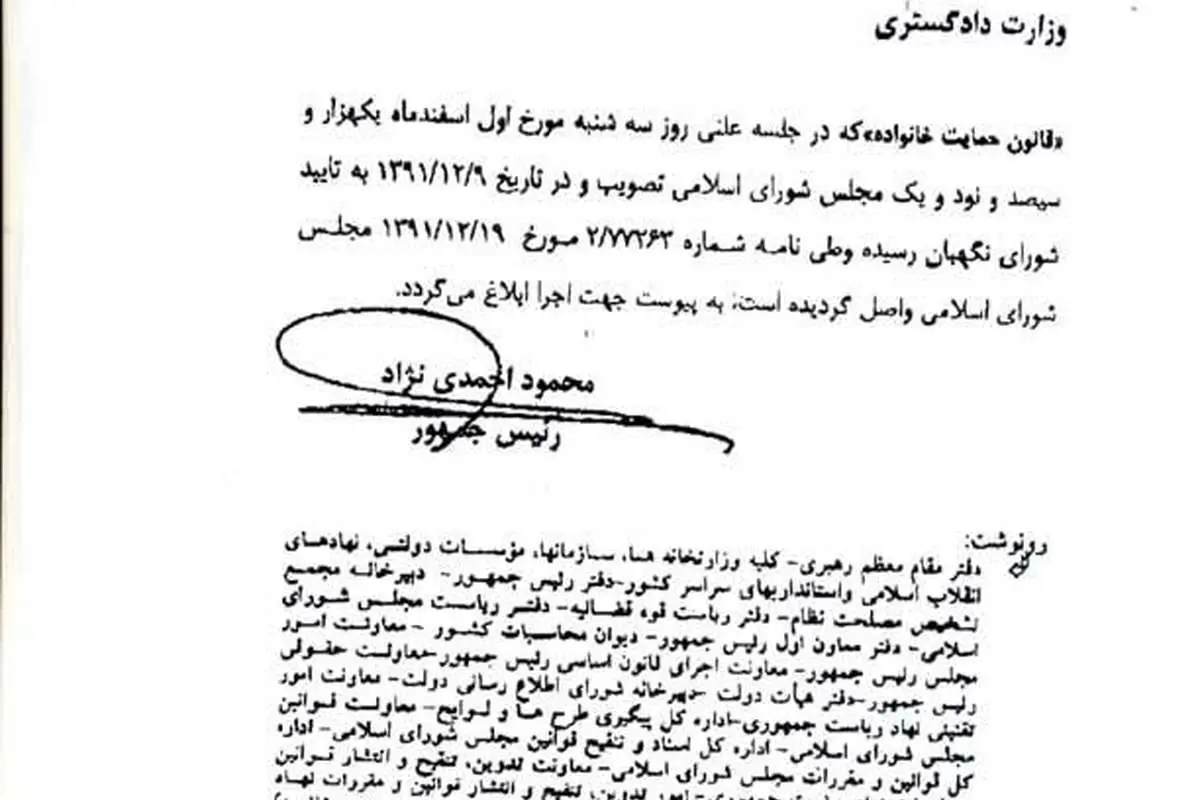 وزارت دادگستری
«قانون حمایت خانواده»که در جلسه علنی روز سه شنبه مورخ اول اسفندماه یکهزار و
سیصد و نود و یک مجلس شورای اسلامی تصویب و در تاریخ ۱۳۹۱/۱۲/۹ به تایید
شورای نگهبان رسیده وطی نامه شماره ۲/۷۷۲۶۳ مورخ ۱۳۹۱/۱۲/۱۹ مجلس
شورای اسلامی واصل گردیده است، به پیوست جهت اجرا ابلاغ می‌گردد.
محمود احمدی نژاد
رئیس جمهور
رونوشت:
دفتر مقام معظم رهبری- کلیه وزارتخانه ها، سازمانها، مؤسسات دولتی، نهادهای
انقلاب اسلامی واستانداریهای سراسر کشور-دفتر رئیس جمهور- دبیرخانه مجمع
تشخیص مصلحت نظام- دفتر ریاست قوه قضائیه- دفتر ریاست مجلس شورای
اسلامی- دفتر معاون اول رئیس جمهور- دیوان محاسبات کشور - معاونت امور
مجلس رئیس جمهور- معاونت اجرای قانون اساسی رئیس جمهور-معاونت حقوقی
رئیس جمهور-دفتر هیأت دولت -دبیرخانه شورای اطلاع رسانی دولت- معاونت امور
تقنینی نهاد ریاست جمهوری-اداره کل پیگیری طرح ها و لوایح- معاونت قوانین
مجلس شورای اسلامی- اداره کل اسناد و تنقیح قوانین مجلس شورای اسلامی- اداره
کل قوانین و مقررات مجلس شورای اسلامی- معاونت تدوین، تنقیح و انتشار قوانین
جمهوری- امور تدوین، تنقیح و انتشار قوانین و مقررات نهاد